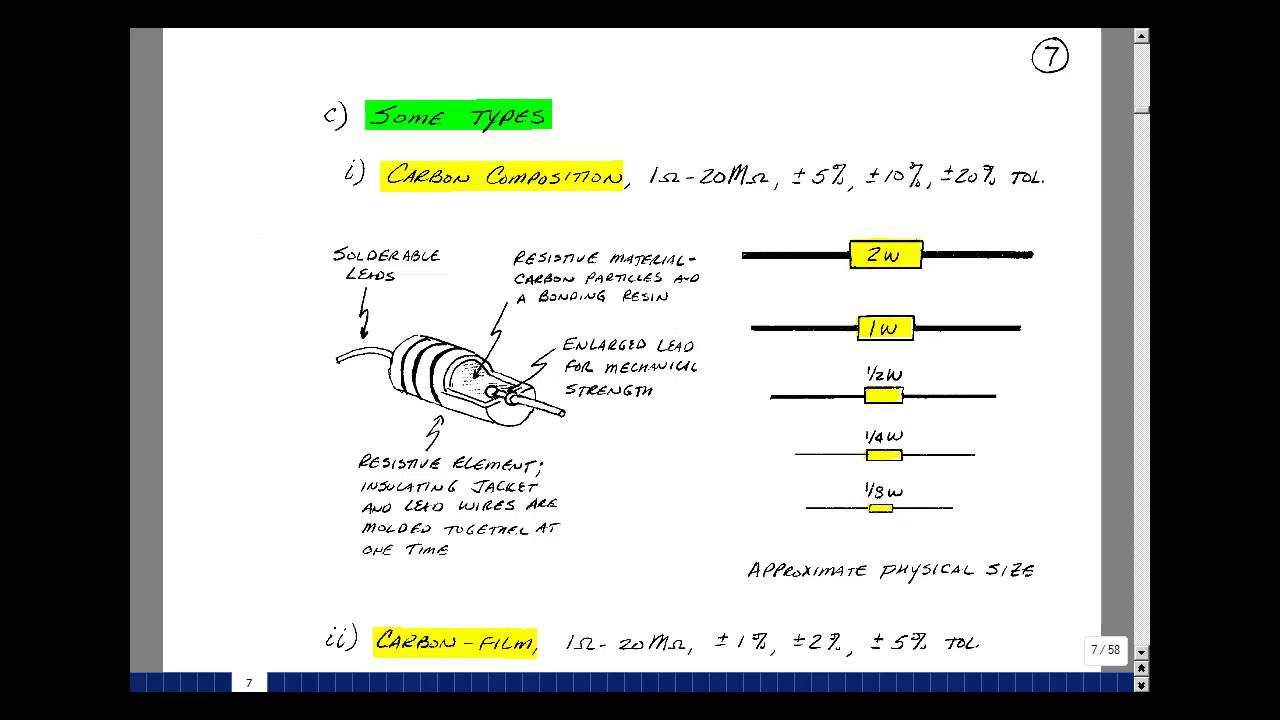 7
c) SOME TYPES
i) CARBON COMPOSITION, 1Ω-20MΩ, ±5%, ±10%, ±20% TOL.
SOLDERABLE
LEADS
RESISTIVE MATERIAL-
CARBON PARTICLES AND
A BONDING RESIN
ENLARGED LEAD
FOR MECHANICAL
STRENGTH
RESISTIVE ELEMENT;
INSULATING JACKET
AND LEAD WIRES ARE
MOLDED TOGETHER AT
ONE TIME
2W
1W
1/2W
1/4W
1/8W
APPROXIMATE PHYSICAL SIZE
ii) CARBON-FILM, 1Ω-20MΩ, ±1%, ±2%, ±5% TOL.
7 / 58
7